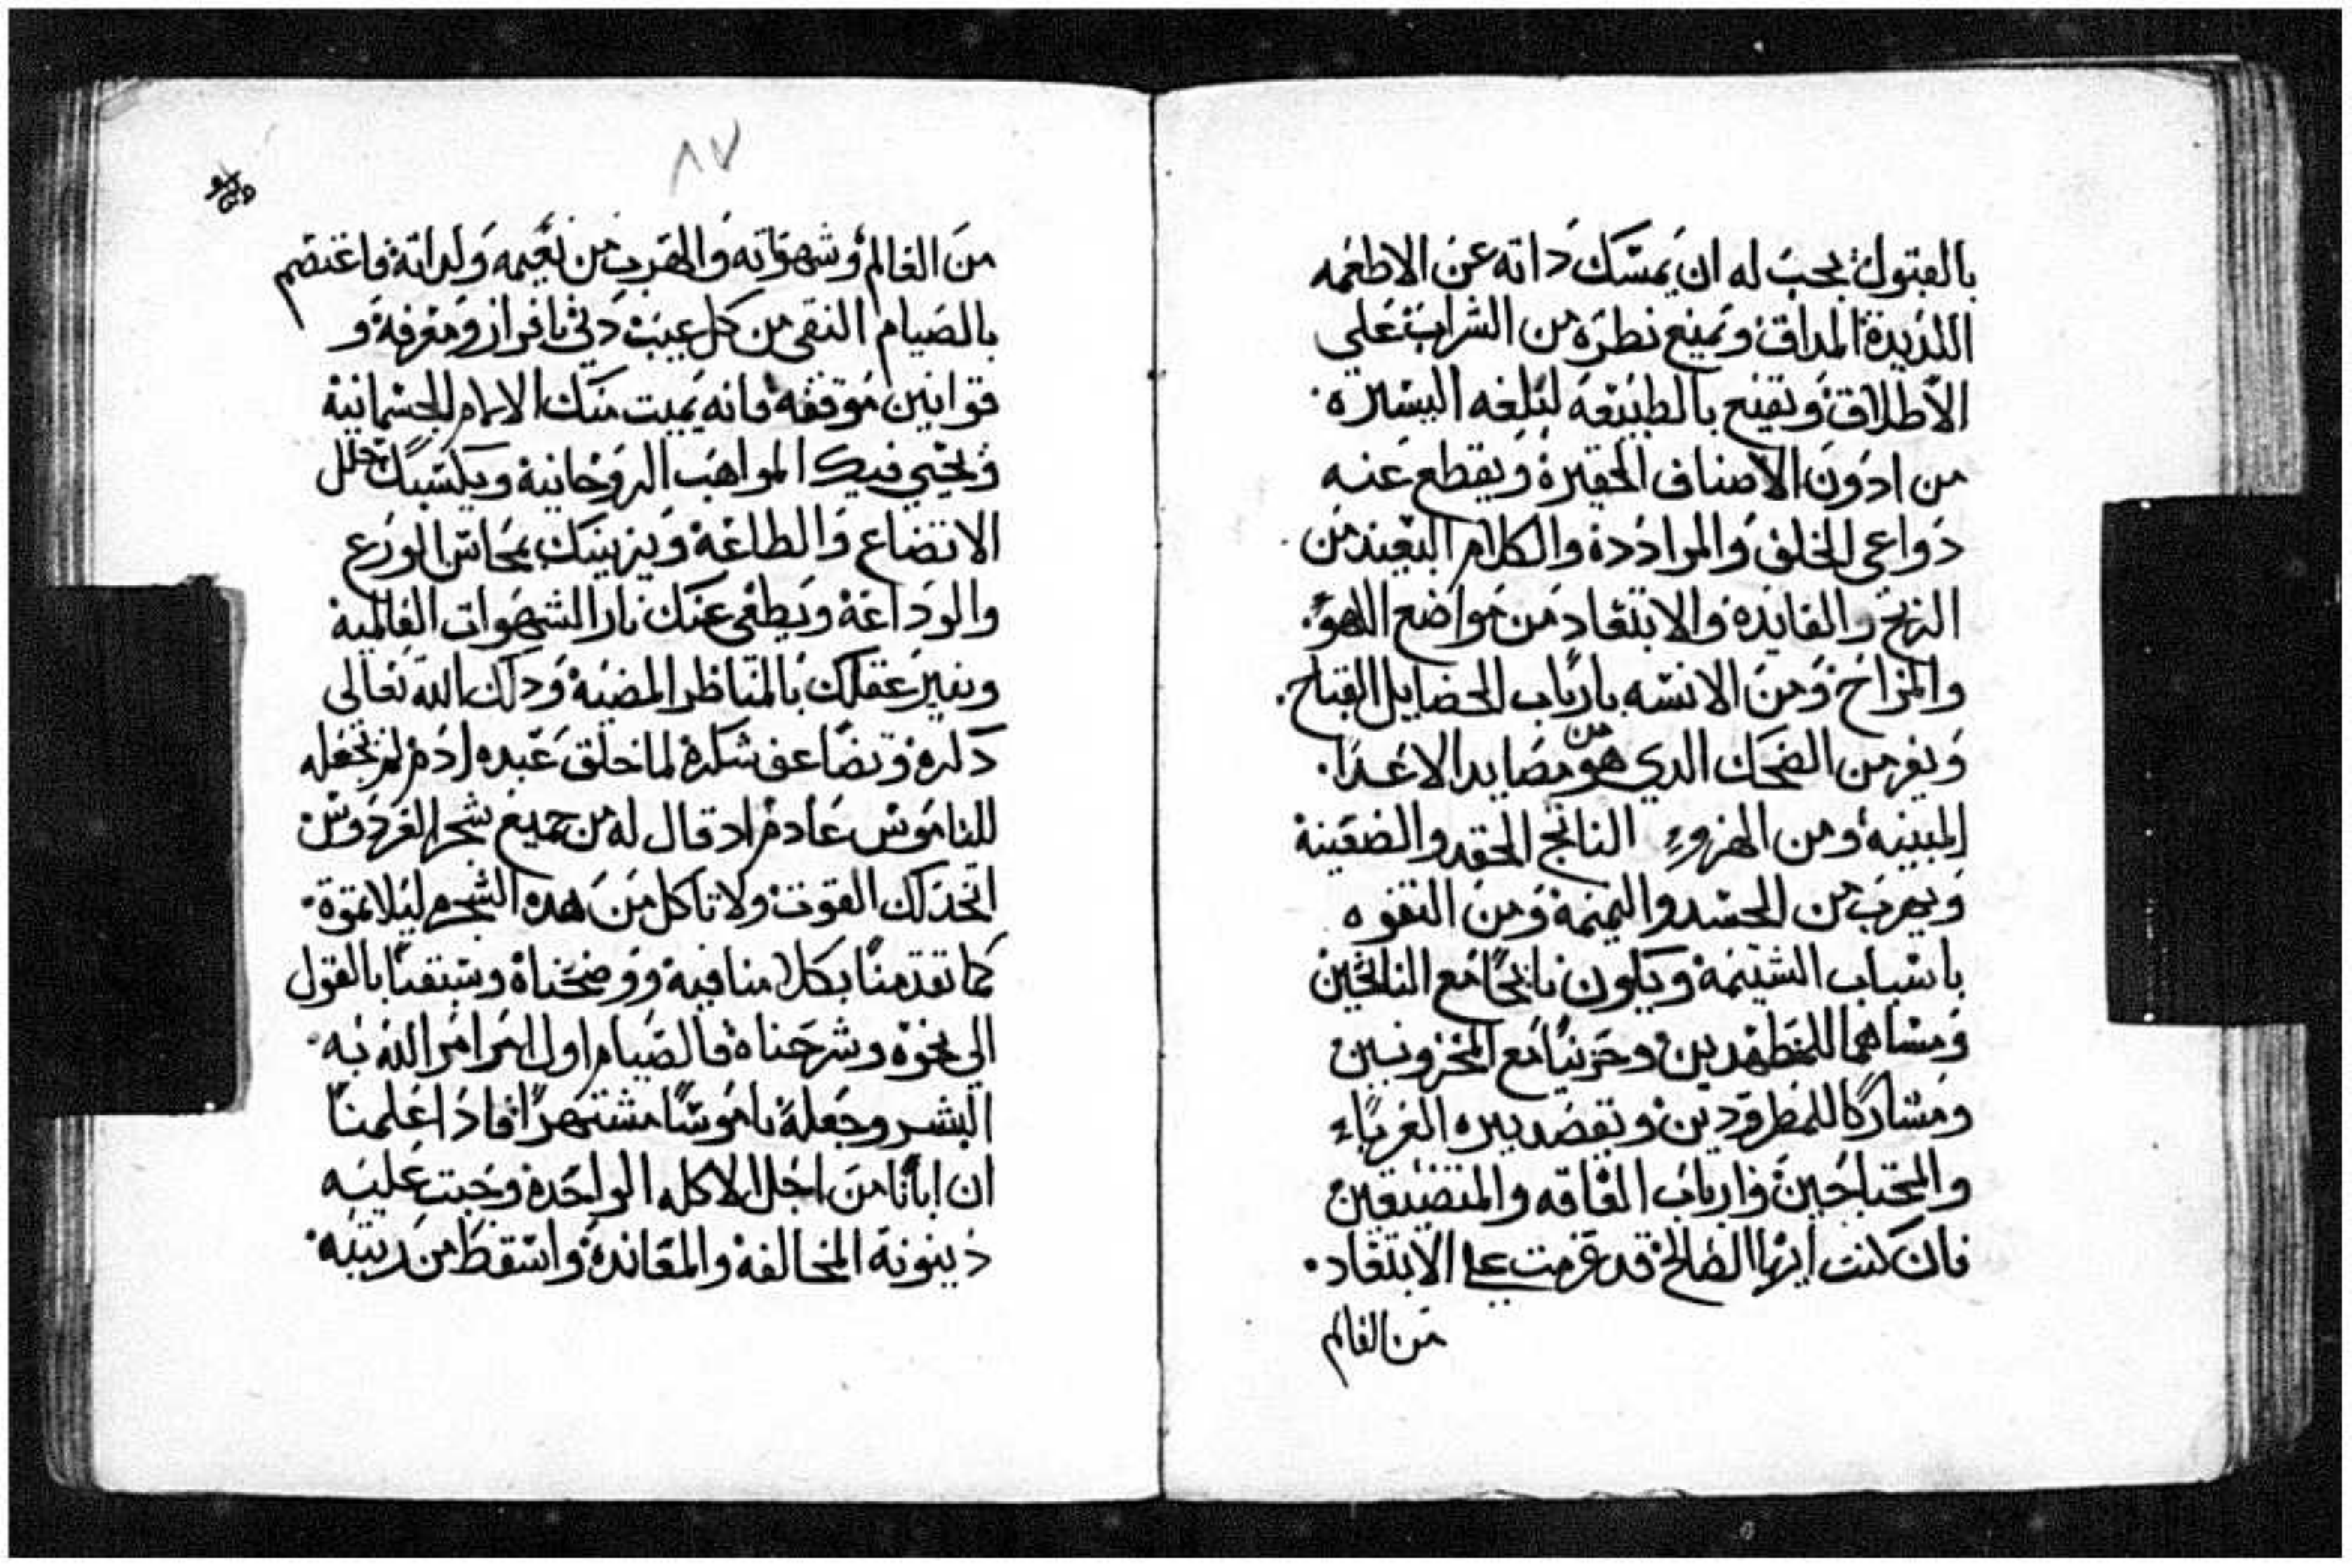 بالقبول يجب له ان يمسك داته عن الاطعمه
اللديدة المداق ويمنع نطره من الشراب علي
الاطلاق ويقنع بالطبيعة لبلغه اليسيره
من ادون الاصناف الحقيرة ويقطع عنه
دواعي الخلف والمراددة والكلام البعيد من
الربح والفايدة والابتعاد من مواضع اللهو
والمزاح ومن الانسه بارباب الخصايل القباح
ويفر من الضحك الدي هو من مصايد الاعدا
المبينه ومن الهزوء الناتج الحقد والضغينة
ويهرب من الحسد والنميمة ومن التفوه
باسباب الشتيمة ويكون نايحًا مع النايحين
ومساهما للمضطهدين وحزينًا مع المحزونين
ومشاركا للمطرودين ويقصد ببره الغرباء
والمحتاجين وارباب الفاقه والمتضيقين
فان كنت ايها الصالح قد عزمت على الابتعاد
من العالم
٨٧
من العالم وشهواته والهرب من نعيمه ولداته فاعتصم
بالصيام النقي من كل عيب دني بافراز ومعرفة و
قوانين موقفه فانه يميت منك الالام الجسمانية
ويحيي فيك المواهب الروحانية ويكسبك حلل
الاتضاع والطاعة ويزينك بمحاسن الورع
والوداعة ويطفي عنك نار الشهوات العالمية
وينير عقلك بالمناظر المضية ودلك الله تعالى
دكره وتضاعف شكره لما خلق عبده ادم لم يجعله
للناموس عادم اد قال له من جميع شجر الفردوس
اتخد لك القوت ولا تاكل من هده الشجره ليلا تموة
كما تقدمنا بكلامنا فيه ووضحناه وسبقنا بالقول
الي نحوه وشرحناه فالصيام اول امر امر الله به
البشر وجعله ناموسًا مشتهرًا فاد اعلمنا
ان ابانا من اجل الاكله الواحدة وجبت عليه
دينونة المخالفة والمعاندة واسقط من رتبته